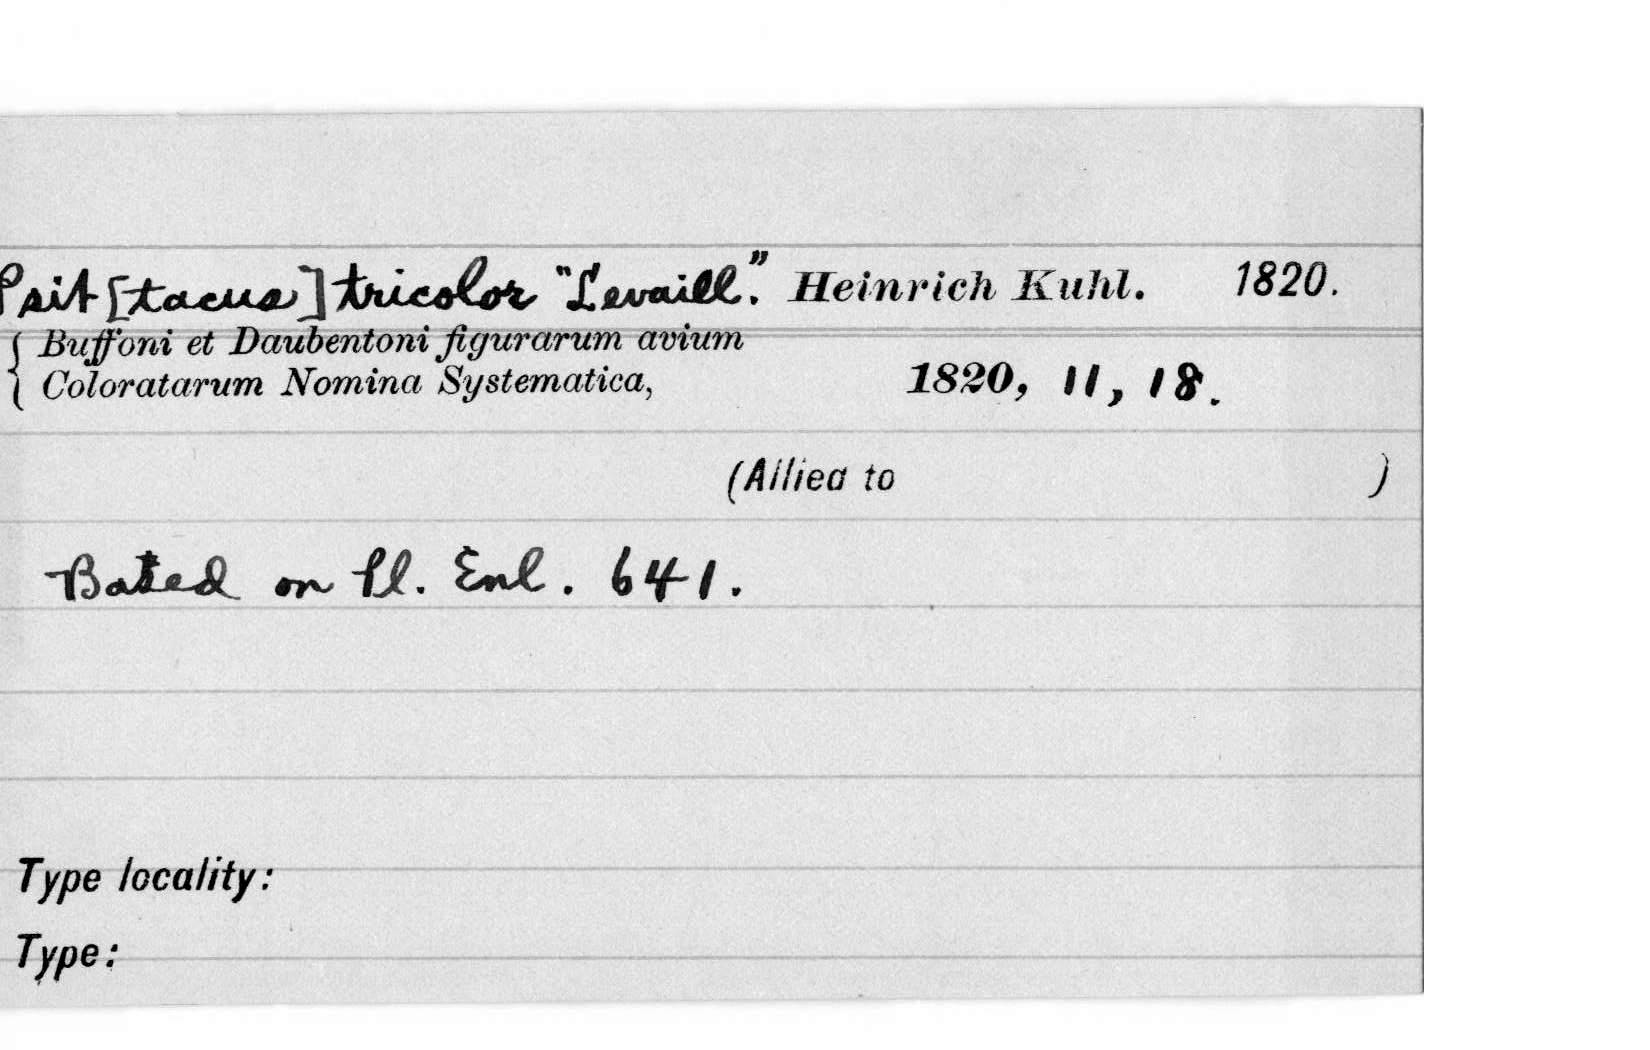 Psit[tacus] tricolor "Levaill." Heinrich Kuhl. 1820.
Buffoni et Daubentoni figurarum avium
Coloratarum Nomina Systematica, 1820, 11, 18.
(Allied to )
Based on Pl. Enl. 641.
Type locality:
Type: